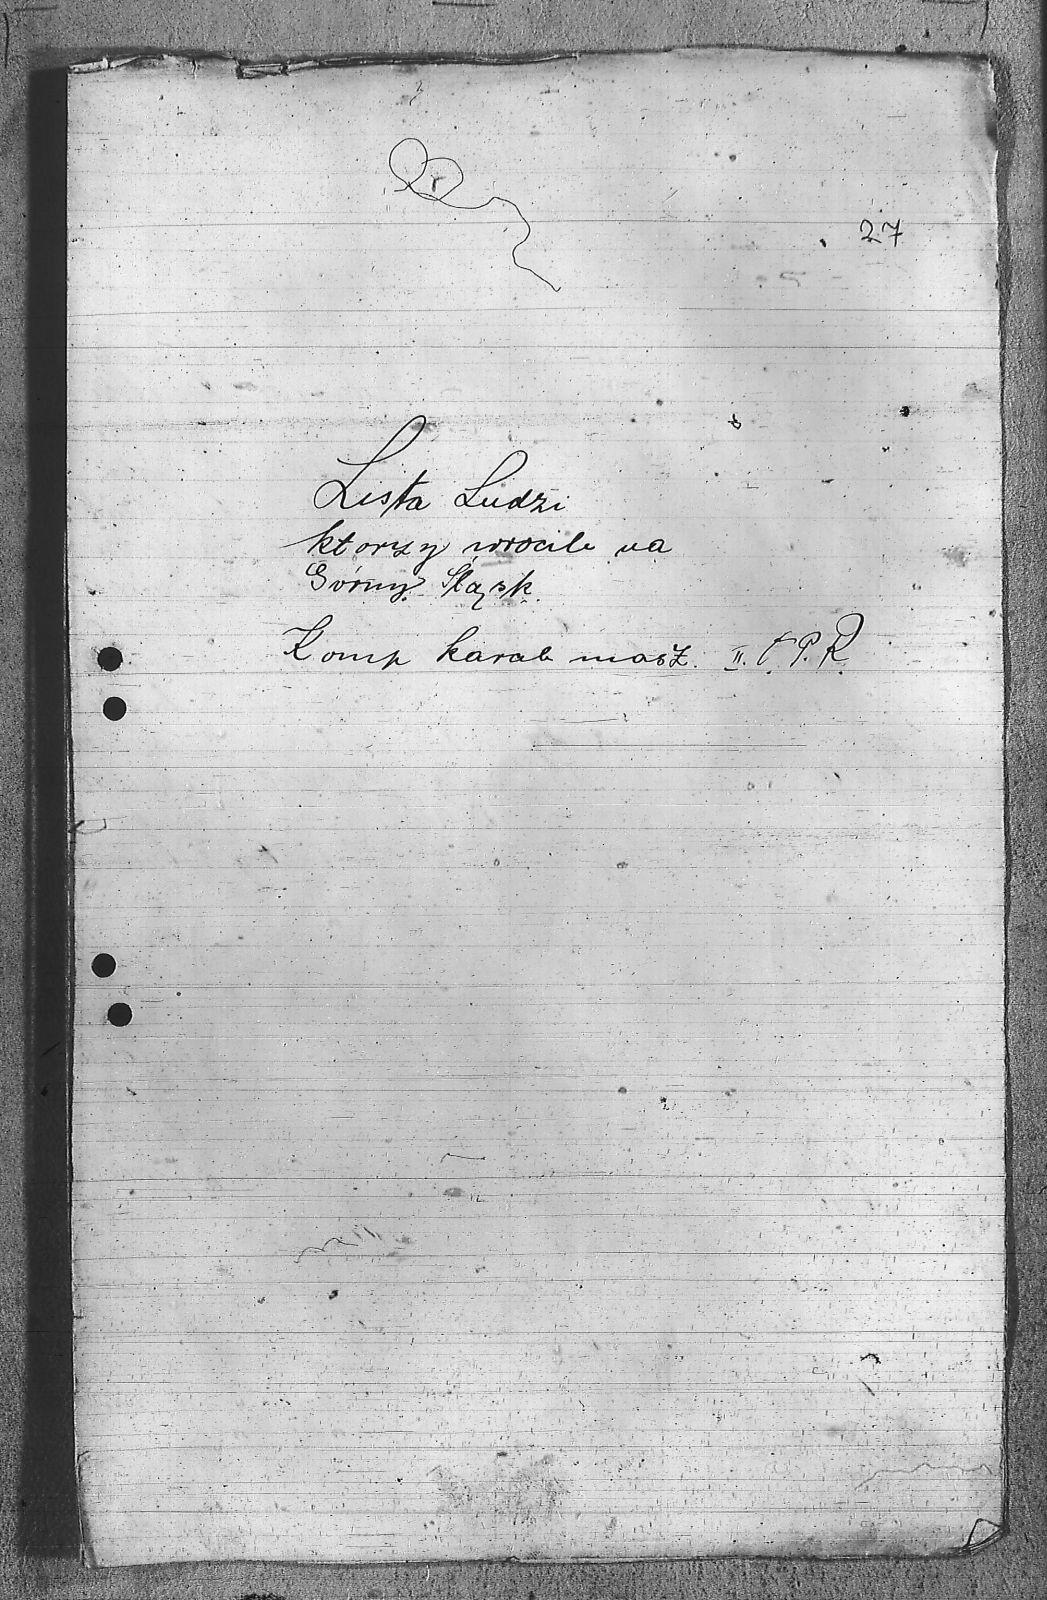 27
Lista Ludzi
ktorzy wrocili na
Górny Śląsk.
Komp karab masz. II. P. R.